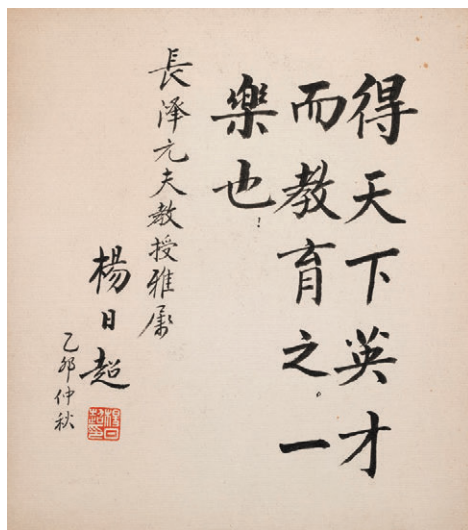 得天下英才
而教育之。一
樂也!
長泽元夫教授雅属
楊日超
乙卯仲秋
楊日
超印